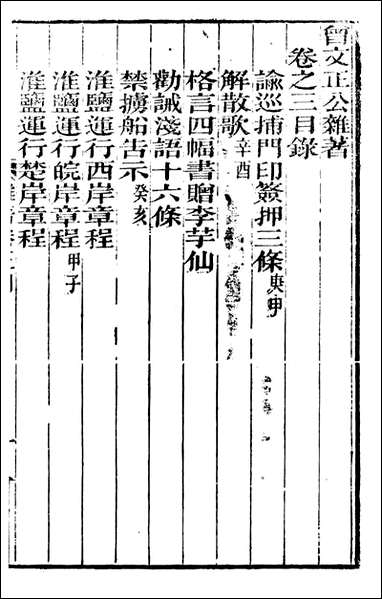 曾文正公雜著
卷之三目錄
諭巡捕門印簽押三條庚申
解散歌辛酉
格言四幅書贈李芋仙
勸誡淺語十六條
禁擄船告示癸亥
淮鹽運行西岸章程
淮鹽運行皖岸章程甲子
淮鹽運行楚岸章程